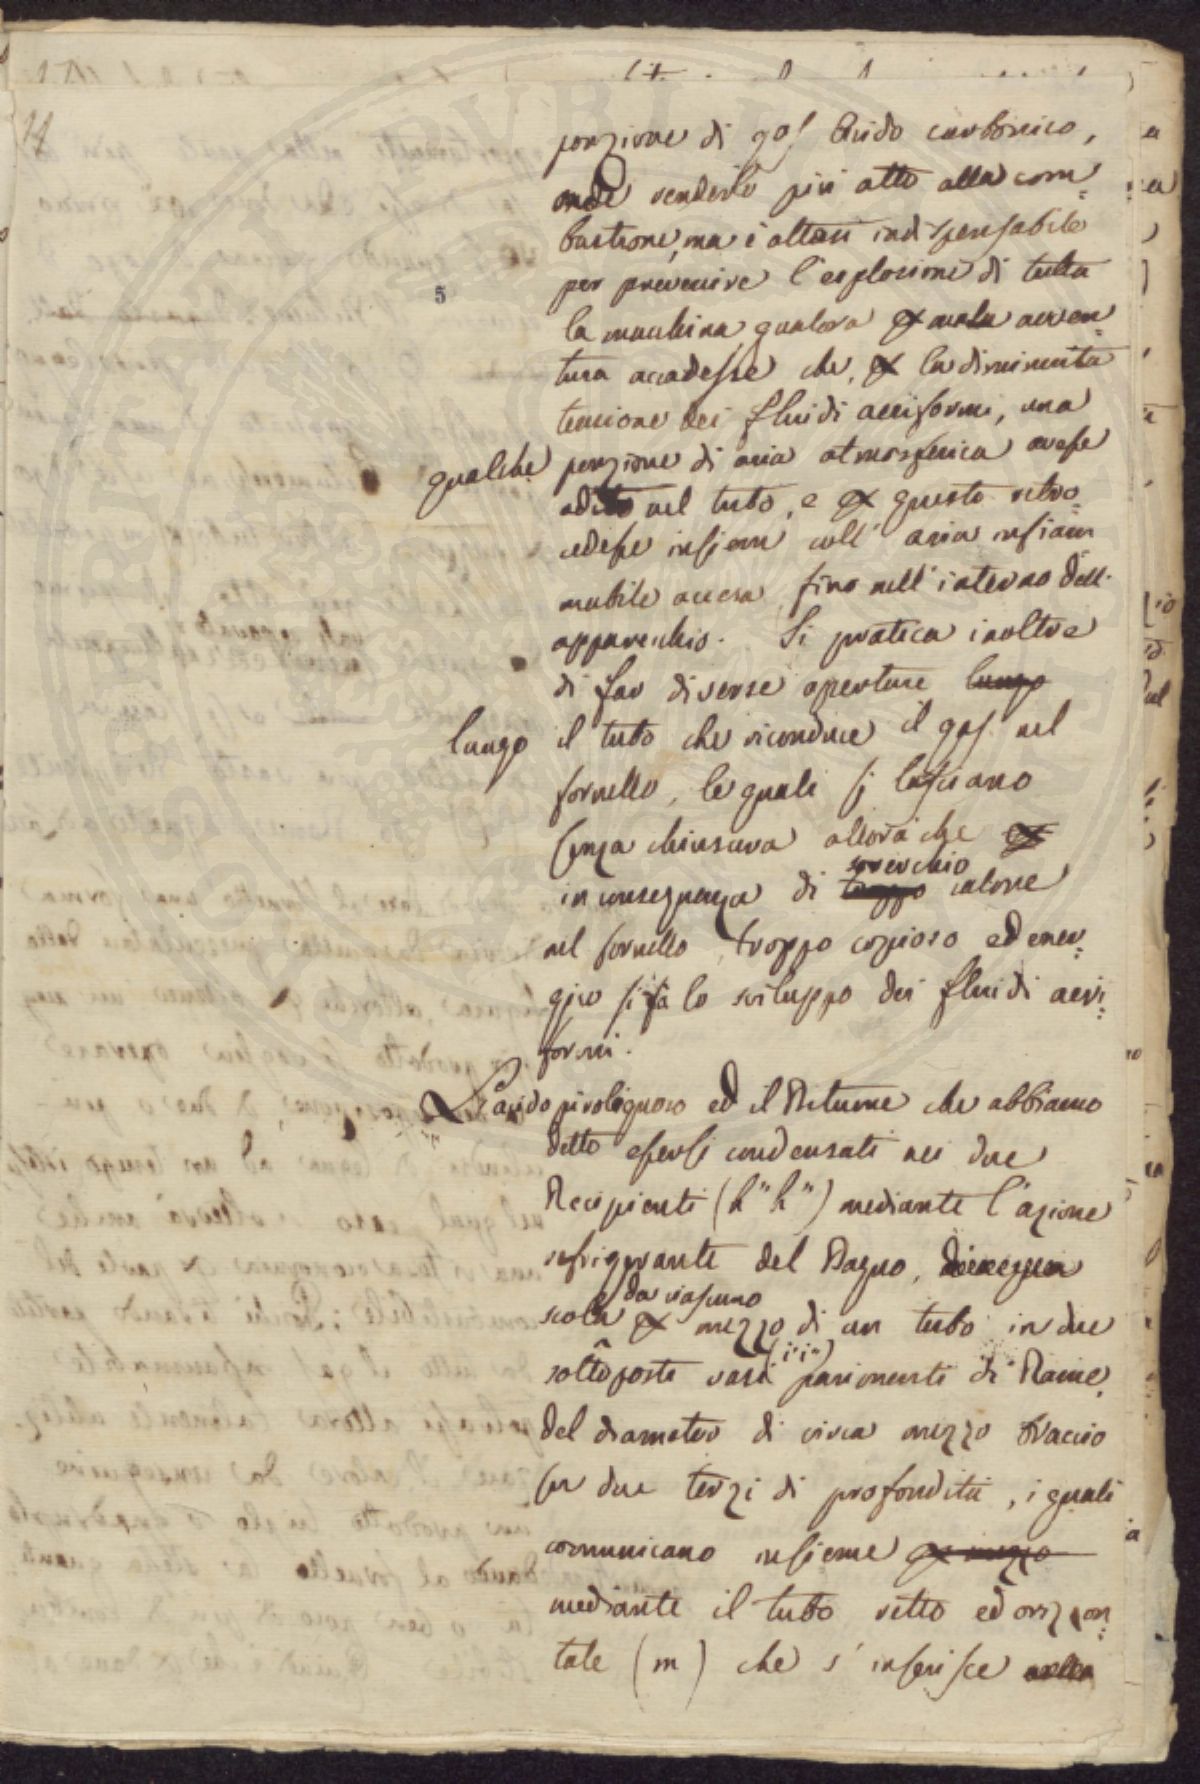 14
porzione di gas Acido carbonico,
onde renderlo più atto alla com=
bustione, ma è altresì indispensabile
5
per prevenire l'esplosione di tutta
la macchina, qualora p mala avven=
tura accadesse che, p la diminuita
tensione dei fluidi aeriformi, una
qualche porzione di aria atmosferica avesse
adito nel tubo, e p questo retro=
cedesse insieme coll' aria infiam
mabile accesa fino nell'interno dell'
apparecchio. Si pratica inoltre
di far diverse aperture lungo
lungo il tubo che riconduce il gas nel
fornello, le quali si lasciano
senza chiusura allora che p
soverchio
in conseguenza di troppo calore
nel fornello, troppo copioso ed ener=
gico si fa lo sviluppo dei fluidi aeri=
formi.
L'acido pirolignoso ed il Bitume che abbiamo
detto essersi condensati nei due
Recipienti (h" h") mediante l'azione
refrigerante del Bagno,
da ciascuno
scola p mezzo di un tubo in due
(i" i")
sottoposti vasi parimenti di Rame,
del diametro di circa mezzo braccio
su due terzi di profondità, i quali
comunicano insieme p mezzo
mediante il tubo retto ed orizzon=
tale (m) che s' inserisce nella